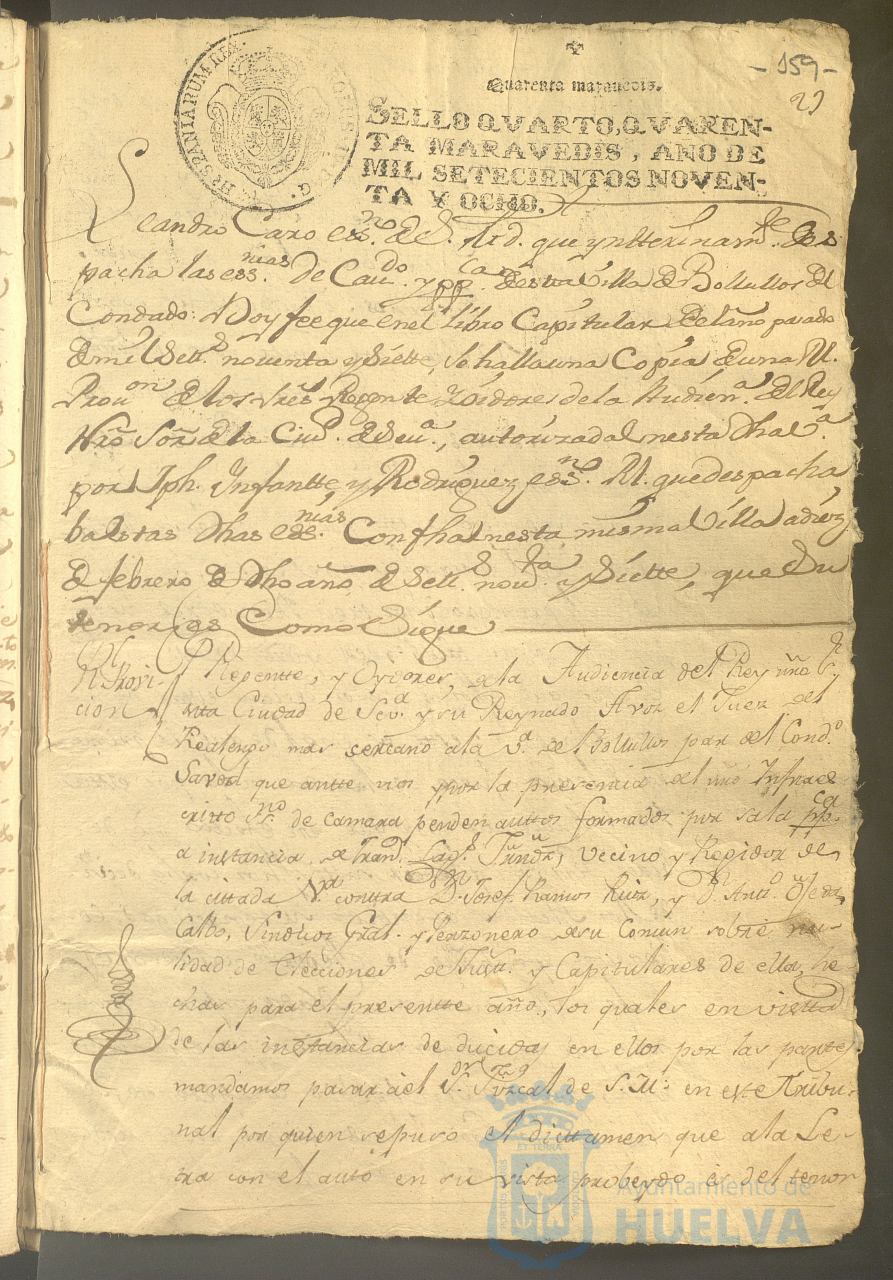 - 159 -
Quarenta maravedis.
HISPANIARUM REX
SELLO QVARTO, QVAREN-
TA MARAVEDIS, AÑO DE
MIL SETECIENTOS NOVEN-
TA Y OCHO.
Leandro Caro essno. de S. M. que ynterinamte. Des
pacha las essnias de Cavdo. y ppcas. de esta Villa de Bollullos del
Condado: Doy fee que en el Libro Capitular del año pasado
de mil Setts. noventa y Siette, se halla una Copia de una Rl.
Provon. de los Sres. Regente Oidores de la Audiena. del Rey
Nro. Sor. de la Ciud. de Seva., autorizada en esta dha Va.
por Jph. Infantte y Rodriguez essno. Rl. que despacha
ba estas dhas essnias. Con fha en esta misma Villa a diez
de febrero de dho año de Setts. novta. y Siette, que su
tenor es Como Sigue
Rl. Provi-
cion
Regentte, y Oydores, de la Audiencia del Rey nro Sr.
en esta Ciudad de Seva. y su Reynado A vos el Juez del
Realengo mas sercano ala Va. de Bollullos par del Condo.
Saved que antte nos y por la presencia del nro Infraes
cripto Sno. de camara penden auttos formados por sala ppca
a instancia de Frano. Vecino y Regidor de
la cittada Va. contra Dn. Josef Ramos Ruiz, y Dn. Anto. Ojeda
Calbo, Sindicos Gral. y Perzonero de su Comun sobre nu-
lidad de Elecciones de Justa. y Capitulares de ella, he-
chas para el presentte año, los quales en vistta
de las instancias deducidas en ellos por las partes
mandamos pasar al Sor. Fiscal de S. M. en este Tribu-
nal por quien se puso el dicttamen que ala Le-
tra con el auto en su vista probeydo es del tenor
Ayuntamiento de
HUELVA